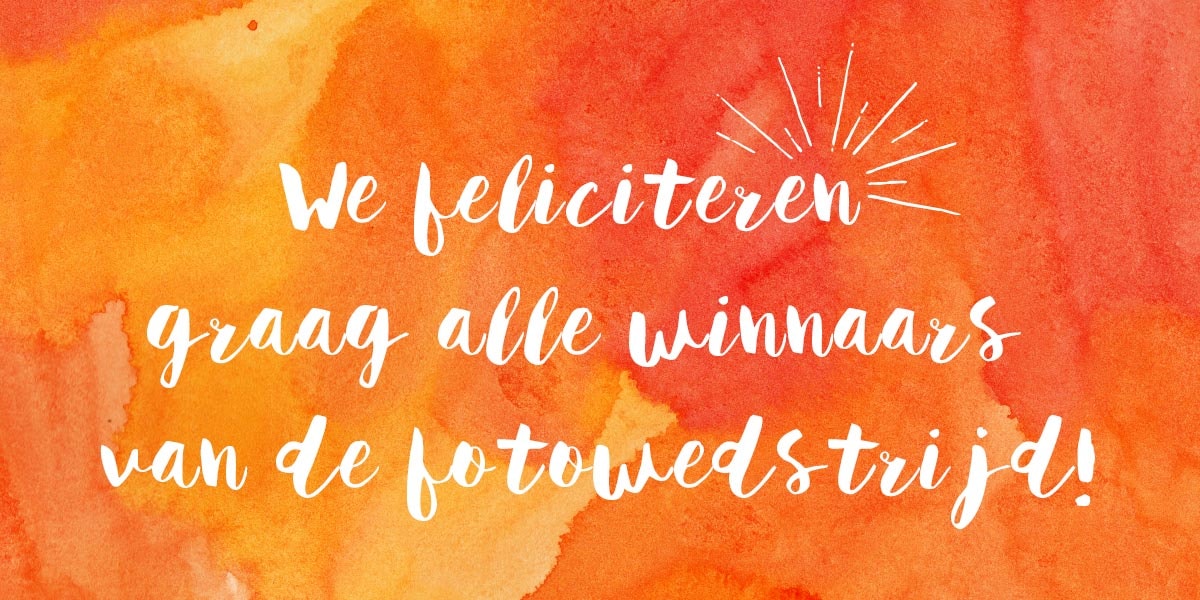 We feliciteren
graag alle winnaars
van de fotowedstrijd!